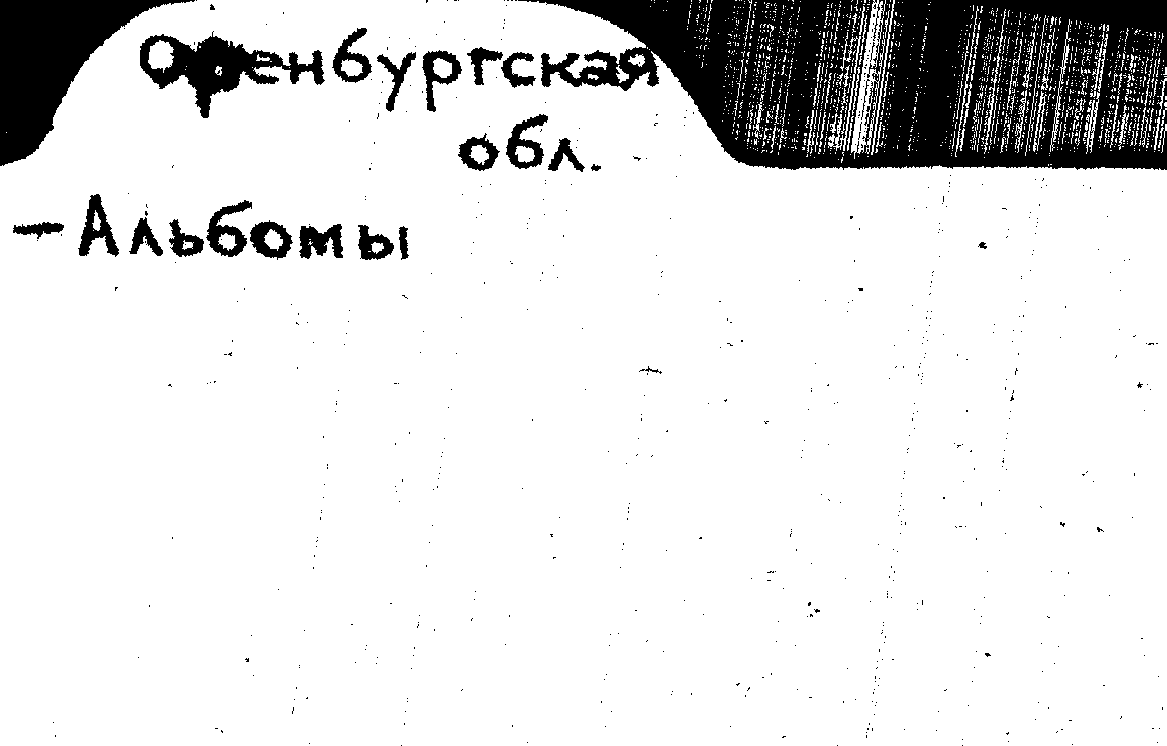 Оренбургская
обл.
- Альбомы